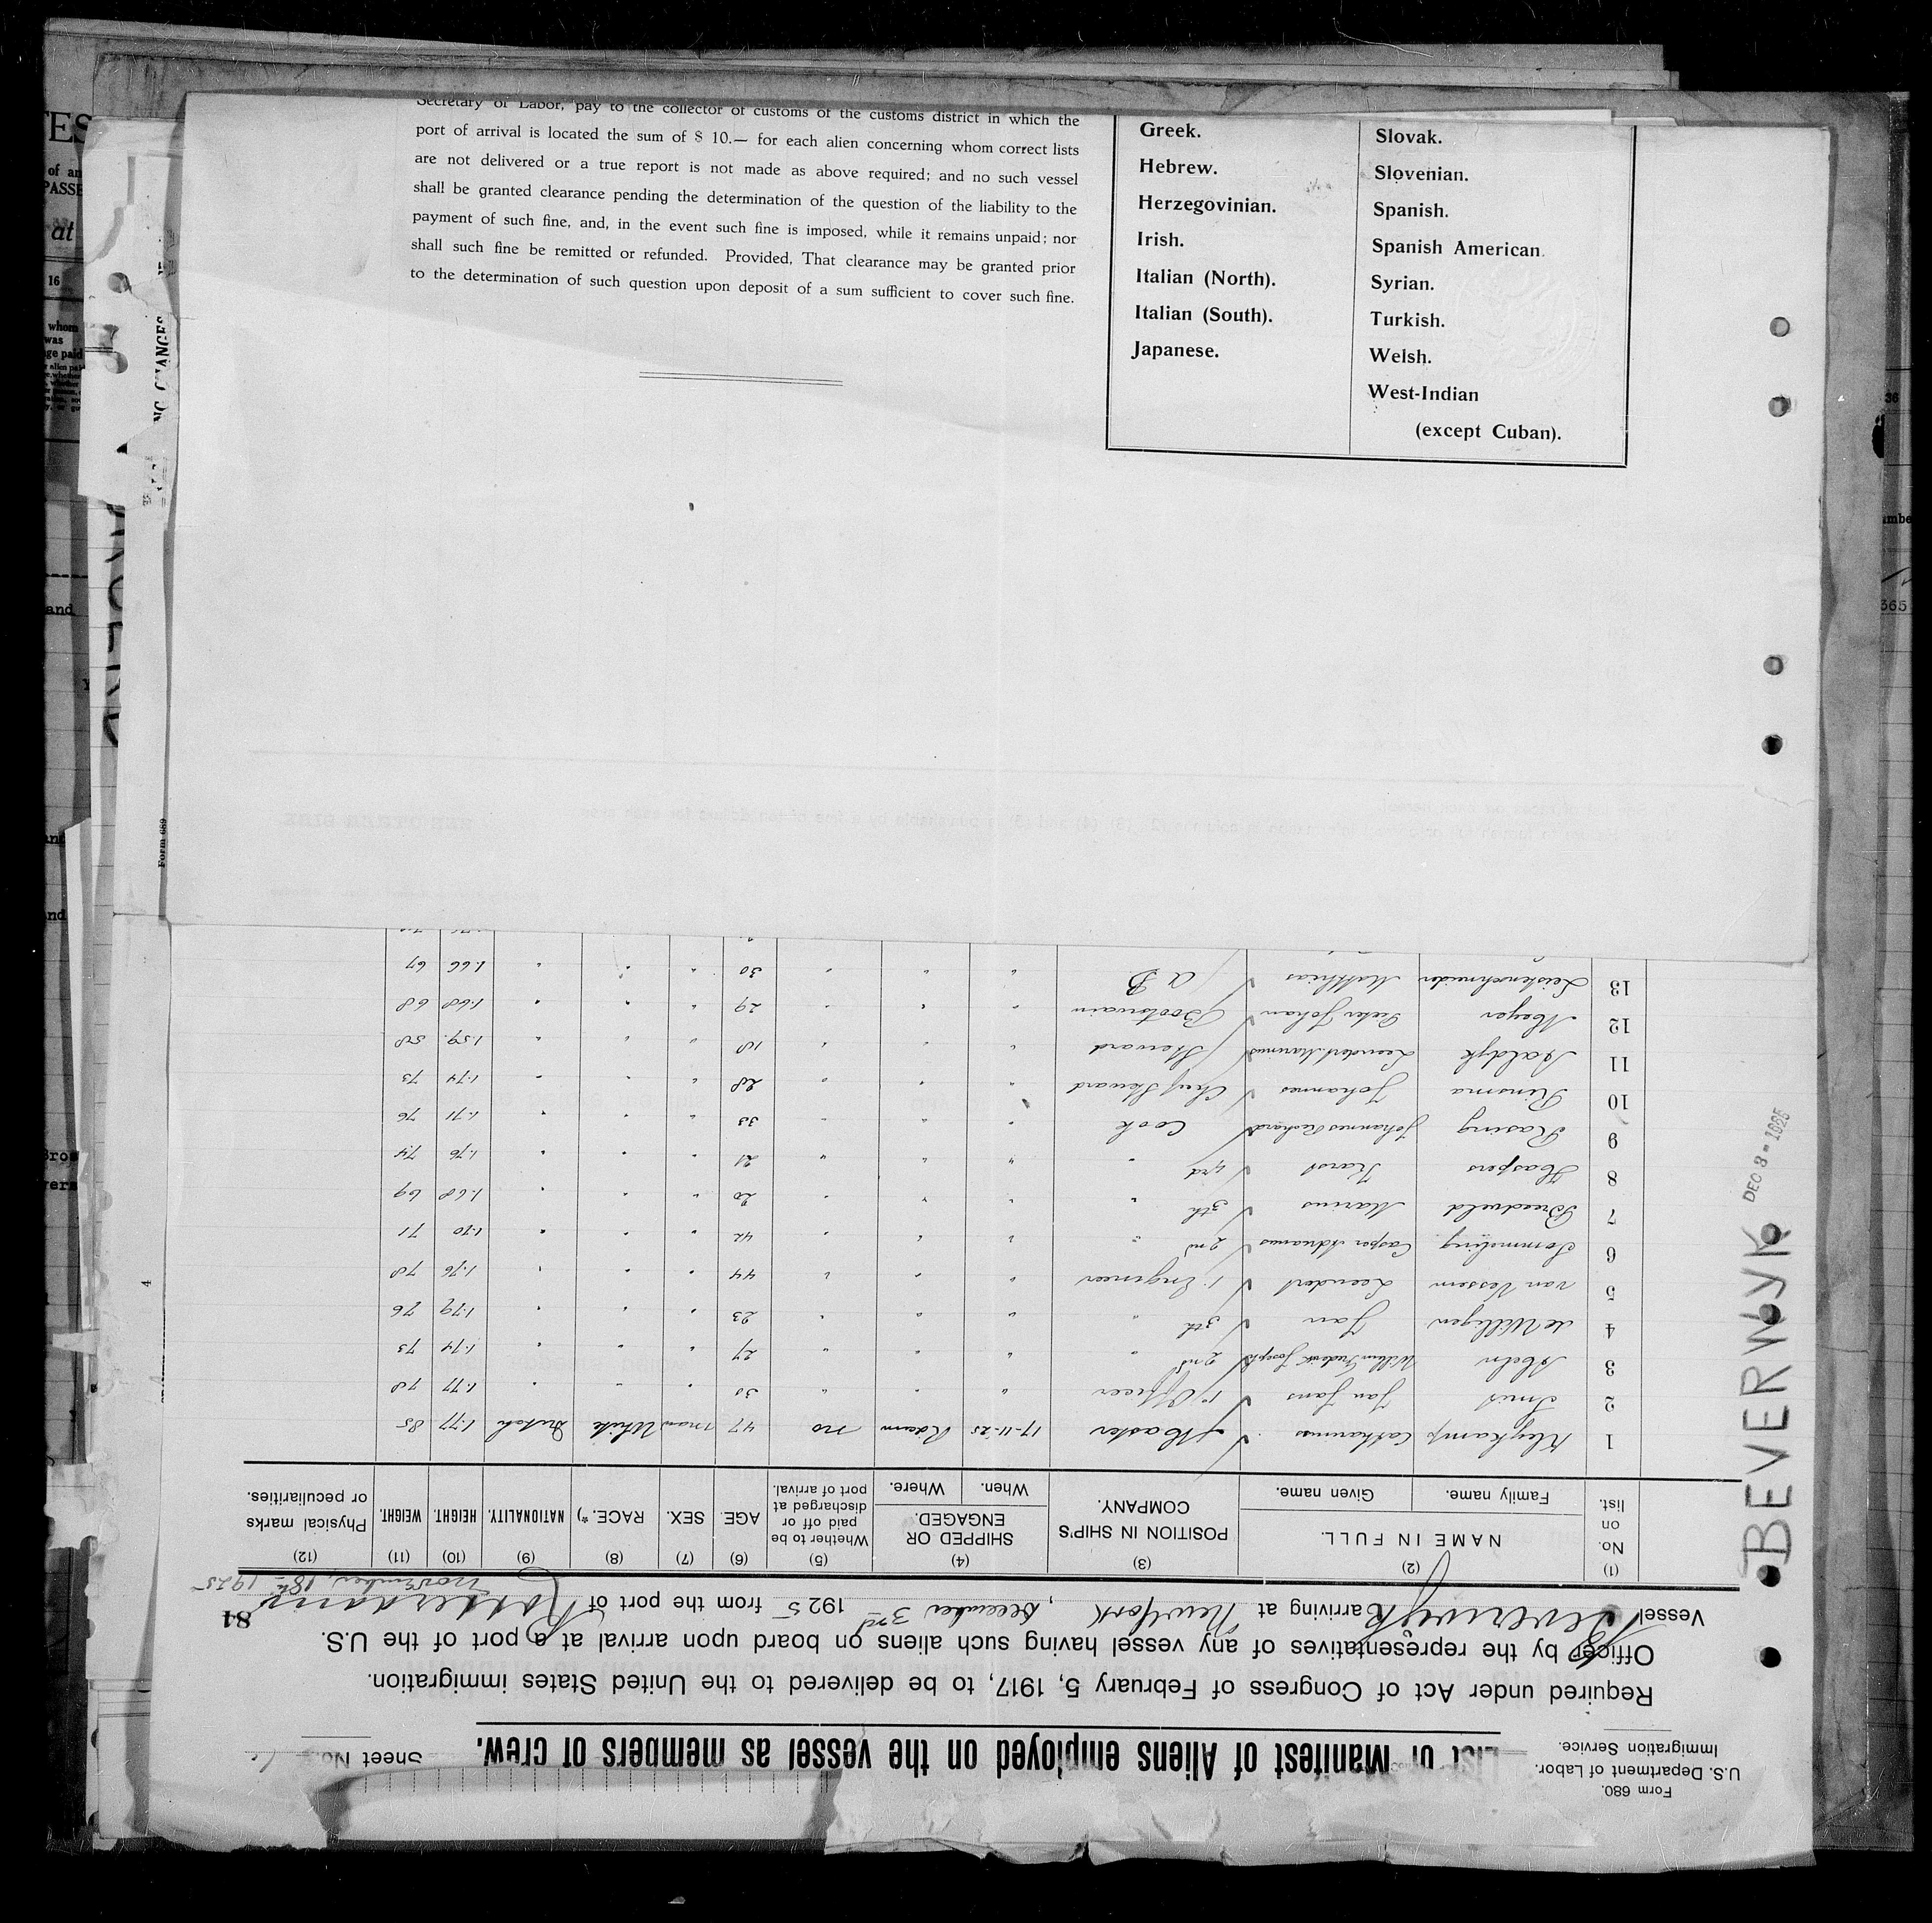 Secretary of Labor, pay to the collector of customs of the customs district in which the
port of arrival is located the sum of $ 10.— for each alien concerning whom correct lists
are not delivered or a true report is not made as above required; and no such vessel
shall be granted clearance pending the determination of the question of the liability to the
payment of such fine, and, in the event such fine is imposed, while it remains unpaid; nor
shall such fine be remitted or refunded. Provided, That clearance may be granted prior
to the determination of such question upon deposit of a sum sufficient to cover such fine.
Greek. Slovak.
Hebrew. Slovenian.
Herzegovinian. Spanish.
Irish. Spanish American.
Italian (North). Syrian.
Italian (South). Turkish.
Japanese. Welsh.
West-Indian
(except Cuban).
Form 689
Form 680.
U.S. Department of Labor.
Immigration Service.
List or Manifest of Aliens employed on the vessel as members of crew.
Sheet No.
Required under Act of Congress of February 5, 1917, to be delivered to the United States immigration.
Officer by the representatives of any vessel having such aliens on board upon arrival at a port of the U.S.
Vessel Beverwyk arriving at New York, December 3rd 1925 from the port of Rotterdam 81
November, 18th 1925
(1) (2) (3) (4) (5) (6) (7) (8) (9) (10) (11) (12)
No. on list. NAME IN FULL. Family name. Given name. POSITION IN SHIP'S COMPANY. SHIPPED OR ENGAGED. When. Where. Whether to be paid off or discharged at port of arrival. AGE. SEX. RACE. *) NATIONALITY. HEIGHT. WEIGHT. Physical marks or peculiarities.
1 Kleykamp Catharinus Master 17-11-25 Rdam no 47 man White Dutch 1.77 85
2 Smit Jan Jans 1e Officer " " " 30 " " " 1.77 78
3 Abeln Willem Frederik Joseph 2nd " " " " 27 " " " 1.74 73
4 de Willigen Jan 3th " " " " 23 " " " 1.79 76
5 van Vessem Leendert 1. Engineer " " " 44 " " " 1.76 78
6 Sommeling Casper Adrianus 2nd " " " " 42 " " " 1.70 71
7 Breedveld Marinus 3th " " " " 20 " " " 1.68 69
8 Haspers Karst 4rd " " " " 21 " " " 1.76 74
9 Rasing Johannes Richard Cook " " " 33 " " " 1.71 76
10 Rinsma Johannes Chief Steward " " " 28 " " " 1.74 73
11 Aaldyk Leendert Marinus Steward " " " 18 " " " 1.59 58
12 Meyer Pieter Johan Bootswain " " " 29 " " " 1.68 68
13 Leistenschneider Matthias A B " " " 30 " " " 1.66 67
BEVERWYK
DEC 3 - 1925